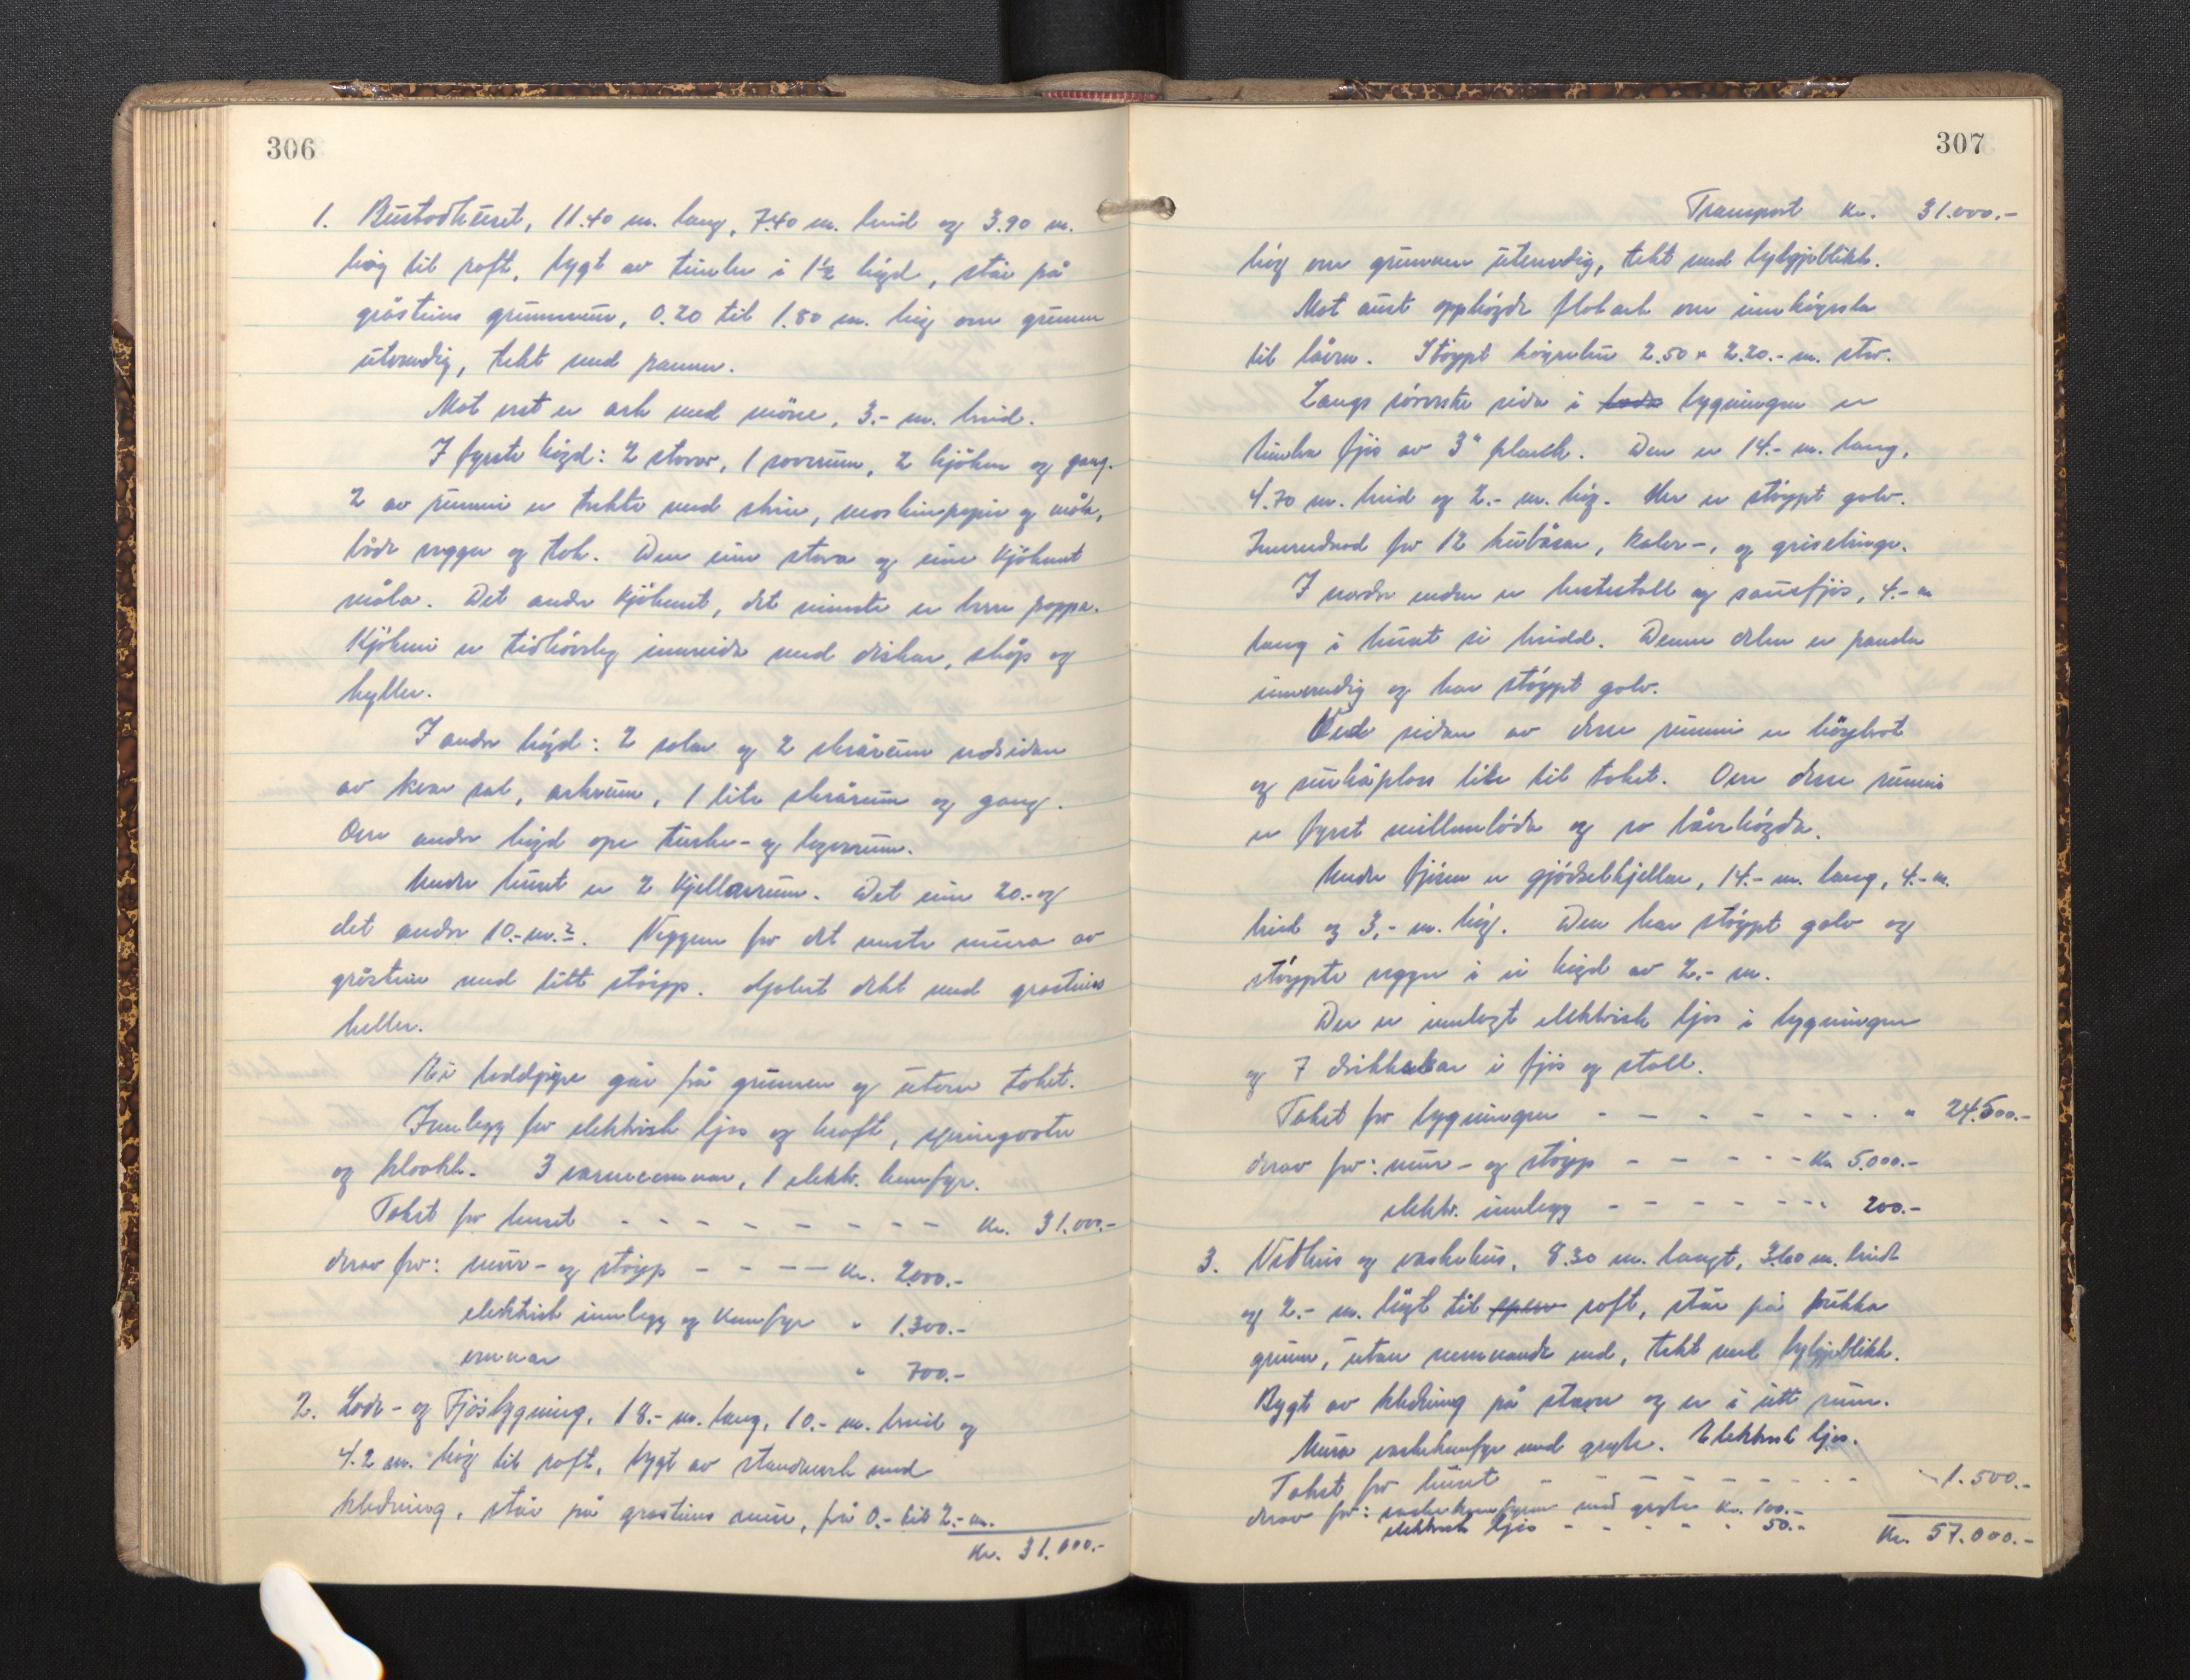 306
1. Bustadhuset, 11.40 m. lang, 7.40 m. breid og 3.90 m.
høg til roft, bygt av timber i 1½ høgd, står på
gråsteins grunnmur, 0.20 til 1.80 m. høg over grunnen
utvendig, tekt med panner.
Mot vest er ark med møne, 3.- m. breid.
I fyrste høgd: 2 stovor, 1 soverum, 2 kjøken og gang.
2 av rummi er trekte med strie, maskinpapir og måla,
både vegger og tak. Den eine stova og eine kjøkenet
måla. Det andre kjøkenet, det minste er berre pappa.
Kjøkeni er tidhøvleg innreidde med diskar, skåp og
hyller.
I andre høgd: 2 salar og 2 skrårum vedsidan
av kvar sal, arkrum, 1 lite skrårum og gang.
Over andre høgd ope turke- og lagerrum.
Under huset er 2 kjellarrum. Det eine 20.- og
det andre 10.- m.². Veggene for det meste mura av
gråstein med litt støyp. Golvet dekt med gråsteins
heller.
Ei loddpipe går frå grunnen og utover taket.
Innlegg for elektrisk ljos og kraft, springvatn
og kloakk. 3 varmeomnar, 1 elektr. komfyr.
Takst for huset - - - - - - - - Kr. 31.000.-
derav for: mur- og støyp - - - - Kr. 2000.-
elektrisk innlegg og komfyr " 1.300.-
omnar " 700.-
2. Løde- og Fjøsbygning, 18.- m. lang, 10.- m. breid og
4.2 m. høg til roft, bygt av standverk med
kledning, står på gråsteins mur, frå 0.- til 2.- m.
Kr. 31.000.-
307
Transport Kr. 31.000.-
høg over grunnen utvendig, tekt med bylgjeblikk.
Mot aust opphøgde flatark over innkøyrsla
til låven. Støypt køyrebru 2.50 x 2.20.- m. stor.
Langs søreste sida i løda bygningen er
timbra fjøs av 3" plank. Den er 14.- m. lang,
4.70 m. breid og 2.- m. høg. Her er støypt golv.
Innreidnad for 12 kubåsar, kalve-, og grisebinge.
I nordre enden er hestestall og sauefjøs, 4.- m
lang i huset si breidd. Denne delen er panela
innvendig og har støypt golv.
Ved sidan av desse rummi er høybrot
og reiskaplass like til taket. Over desse rummi
er fyrst millomløde og so låvehøgda.
Under fjøsen er gjødselkjellar, 14.- m. lang, 4.- m.
breid og 3,- m. høg. Den har støypt golv og
støypte vegger i ei høgd av 2.- m.
Der er innlagt elektrisk ljos i bygningen
og 7 drikkekar i fjøs og stall.
Takst for bygningen - - - - - - - " 24.500.-
derav for: mur- og støyp - - - - - Kr 5.000.-
elektr. innlegg - - - - - - " 200.-
3. Vedhus og vaskehus, 8.30 m. langt, 3.60 m. breidt
og 2.- m. høgt til roft, står på pukka
grunn, utan nemnande ved, tekt med bylgjeblikk.
Bygt av kledning på stavar og er i eitt rum.
Mura vaskekomfyr med gryte. Elektrisk ljos.
Takst for huset - - - - - - - - " 1.500.-
derav for: vaskekomfyren med gryte Kr. 100.-
elektrisk ljos - - - - - " 50.-
Kr. 57.000.-